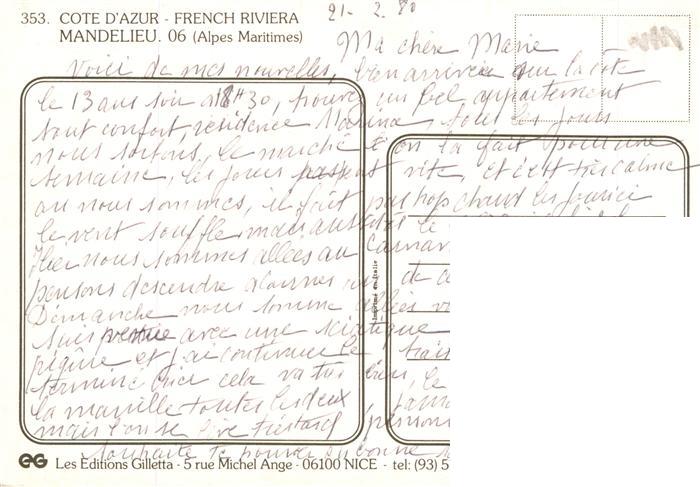 353. COTE D'AZUR - FRENCH RIVIERA
MANDELIEU. 06 (Alpes Maritimes)
21- 2. 80
Ma chère Marie
Voici de mes nouvelles, bien arrivée sur la côte
le 13 au soir a 18H30, trouvé un bel appartement
tout confort, résidence Marina, tous les jours
nous sortons, le marché on la fait pour une
semaine, les jours passent vite, et c'est très calme
ou nous sommes, il fait pas trop chaud les jours ici
le vent souffle mais aussitôt le
Hier nous sommes allées au
pensons descendre a de
Démanche nous somme allées
suis venue avec une sciatique
pigûre et j'ai continuer le trait
terminé hier cela va très bien, le
la manille toutes les deux
mais on se lève
souhaite te bonne
Imprimé en Italie
EG Les Editions Gilletta - 5 rue Michel Ange - 06100 NICE - tel: (93) 5